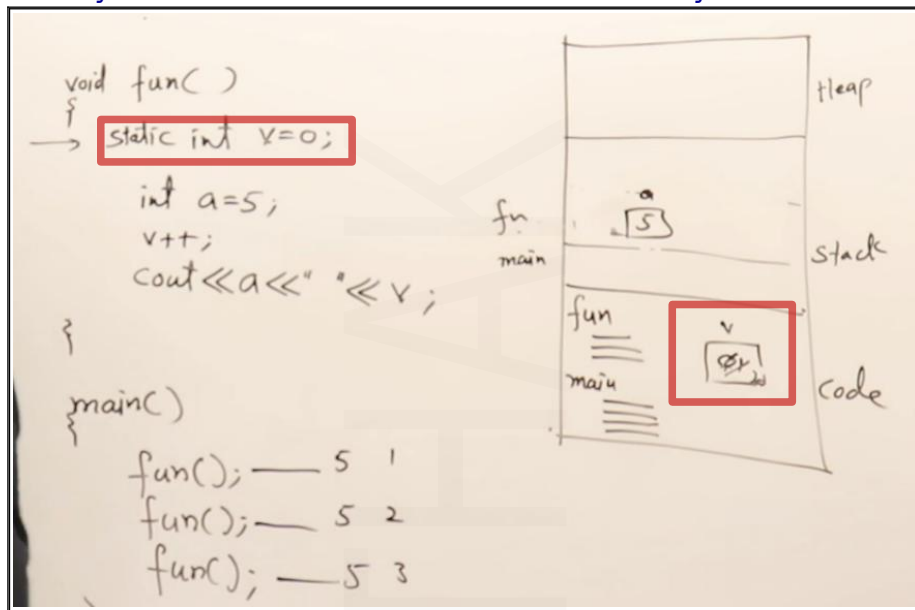 void fun( )
{
→ static int v=0;
int a=5;
v++;
cout<<a<<" "<<v;
}
main()
{
fun(); — 5 1
fun(); — 5 2
fun(); — 5 3
Heap
a
5
fn
main
Stack
fun
v
main
Code